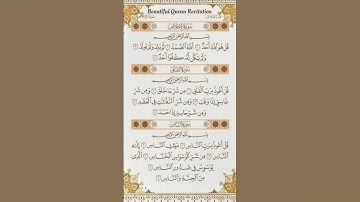 Beautiful Quran Recitation
سُورَةُ الإِخْلَاصِ
بِسْمِ اللَّهِ الرَّحْمَٰنِ الرَّحِيمِ
قُلْ هُوَ اللَّهُ أَحَدٌ ۝ اللَّهُ الصَّمَدُ ۝ لَمْ يَلِدْ وَلَمْ يُولَدْ ۝
وَلَمْ يَكُن لَّهُ كُفُوًا أَحَدٌ ۝
سُورَةُ الفَلَقِ
بِسْمِ اللَّهِ الرَّحْمَٰنِ الرَّحِيمِ
قُلْ أَعُوذُ بِرَبِّ الْفَلَقِ ۝ مِن شَرِّ مَا خَلَقَ ۝ وَمِن شَرِّ
غَاسِقٍ إِذَا وَقَبَ ۝ وَمِن شَرِّ النَّفَّٰثَٰتِ فِي الْعُقَدِ ۝
وَمِن شَرِّ حَاسِدٍ إِذَا حَسَدَ ۝
سُورَةُ النَّاسِ
بِسْمِ اللَّهِ الرَّحْمَٰنِ الرَّحِيمِ
قُلْ أَعُوذُ بِرَبِّ النَّاسِ ۝ مَلِكِ النَّاسِ ۝ إِلَٰهِ
النَّاسِ ۝ مِن شَرِّ الْوَسْوَاسِ الْخَنَّاسِ ۝ الَّذِي
يُوَسْوِسُ فِي صُدُورِ النَّاسِ ۝
مِنَ الْجِنَّةِ وَالنَّاسِ ۝